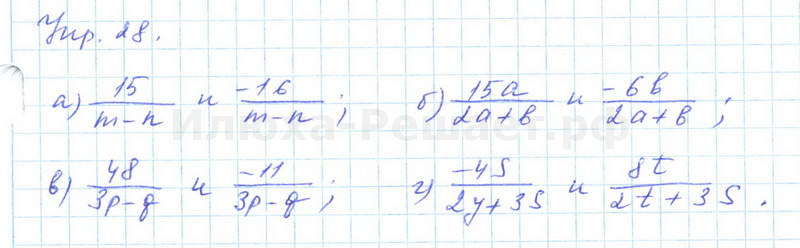 Упр. 28.
а) 15/(m-n) и -16/(m-n); б) 15a/(2a+b) и -6b/(2a+b);
в) 48/(3p-q) и -11/(3p-q); г) -4S/(2y+3S) и 8t/(2t+3S).
Илюха-Решает.рф